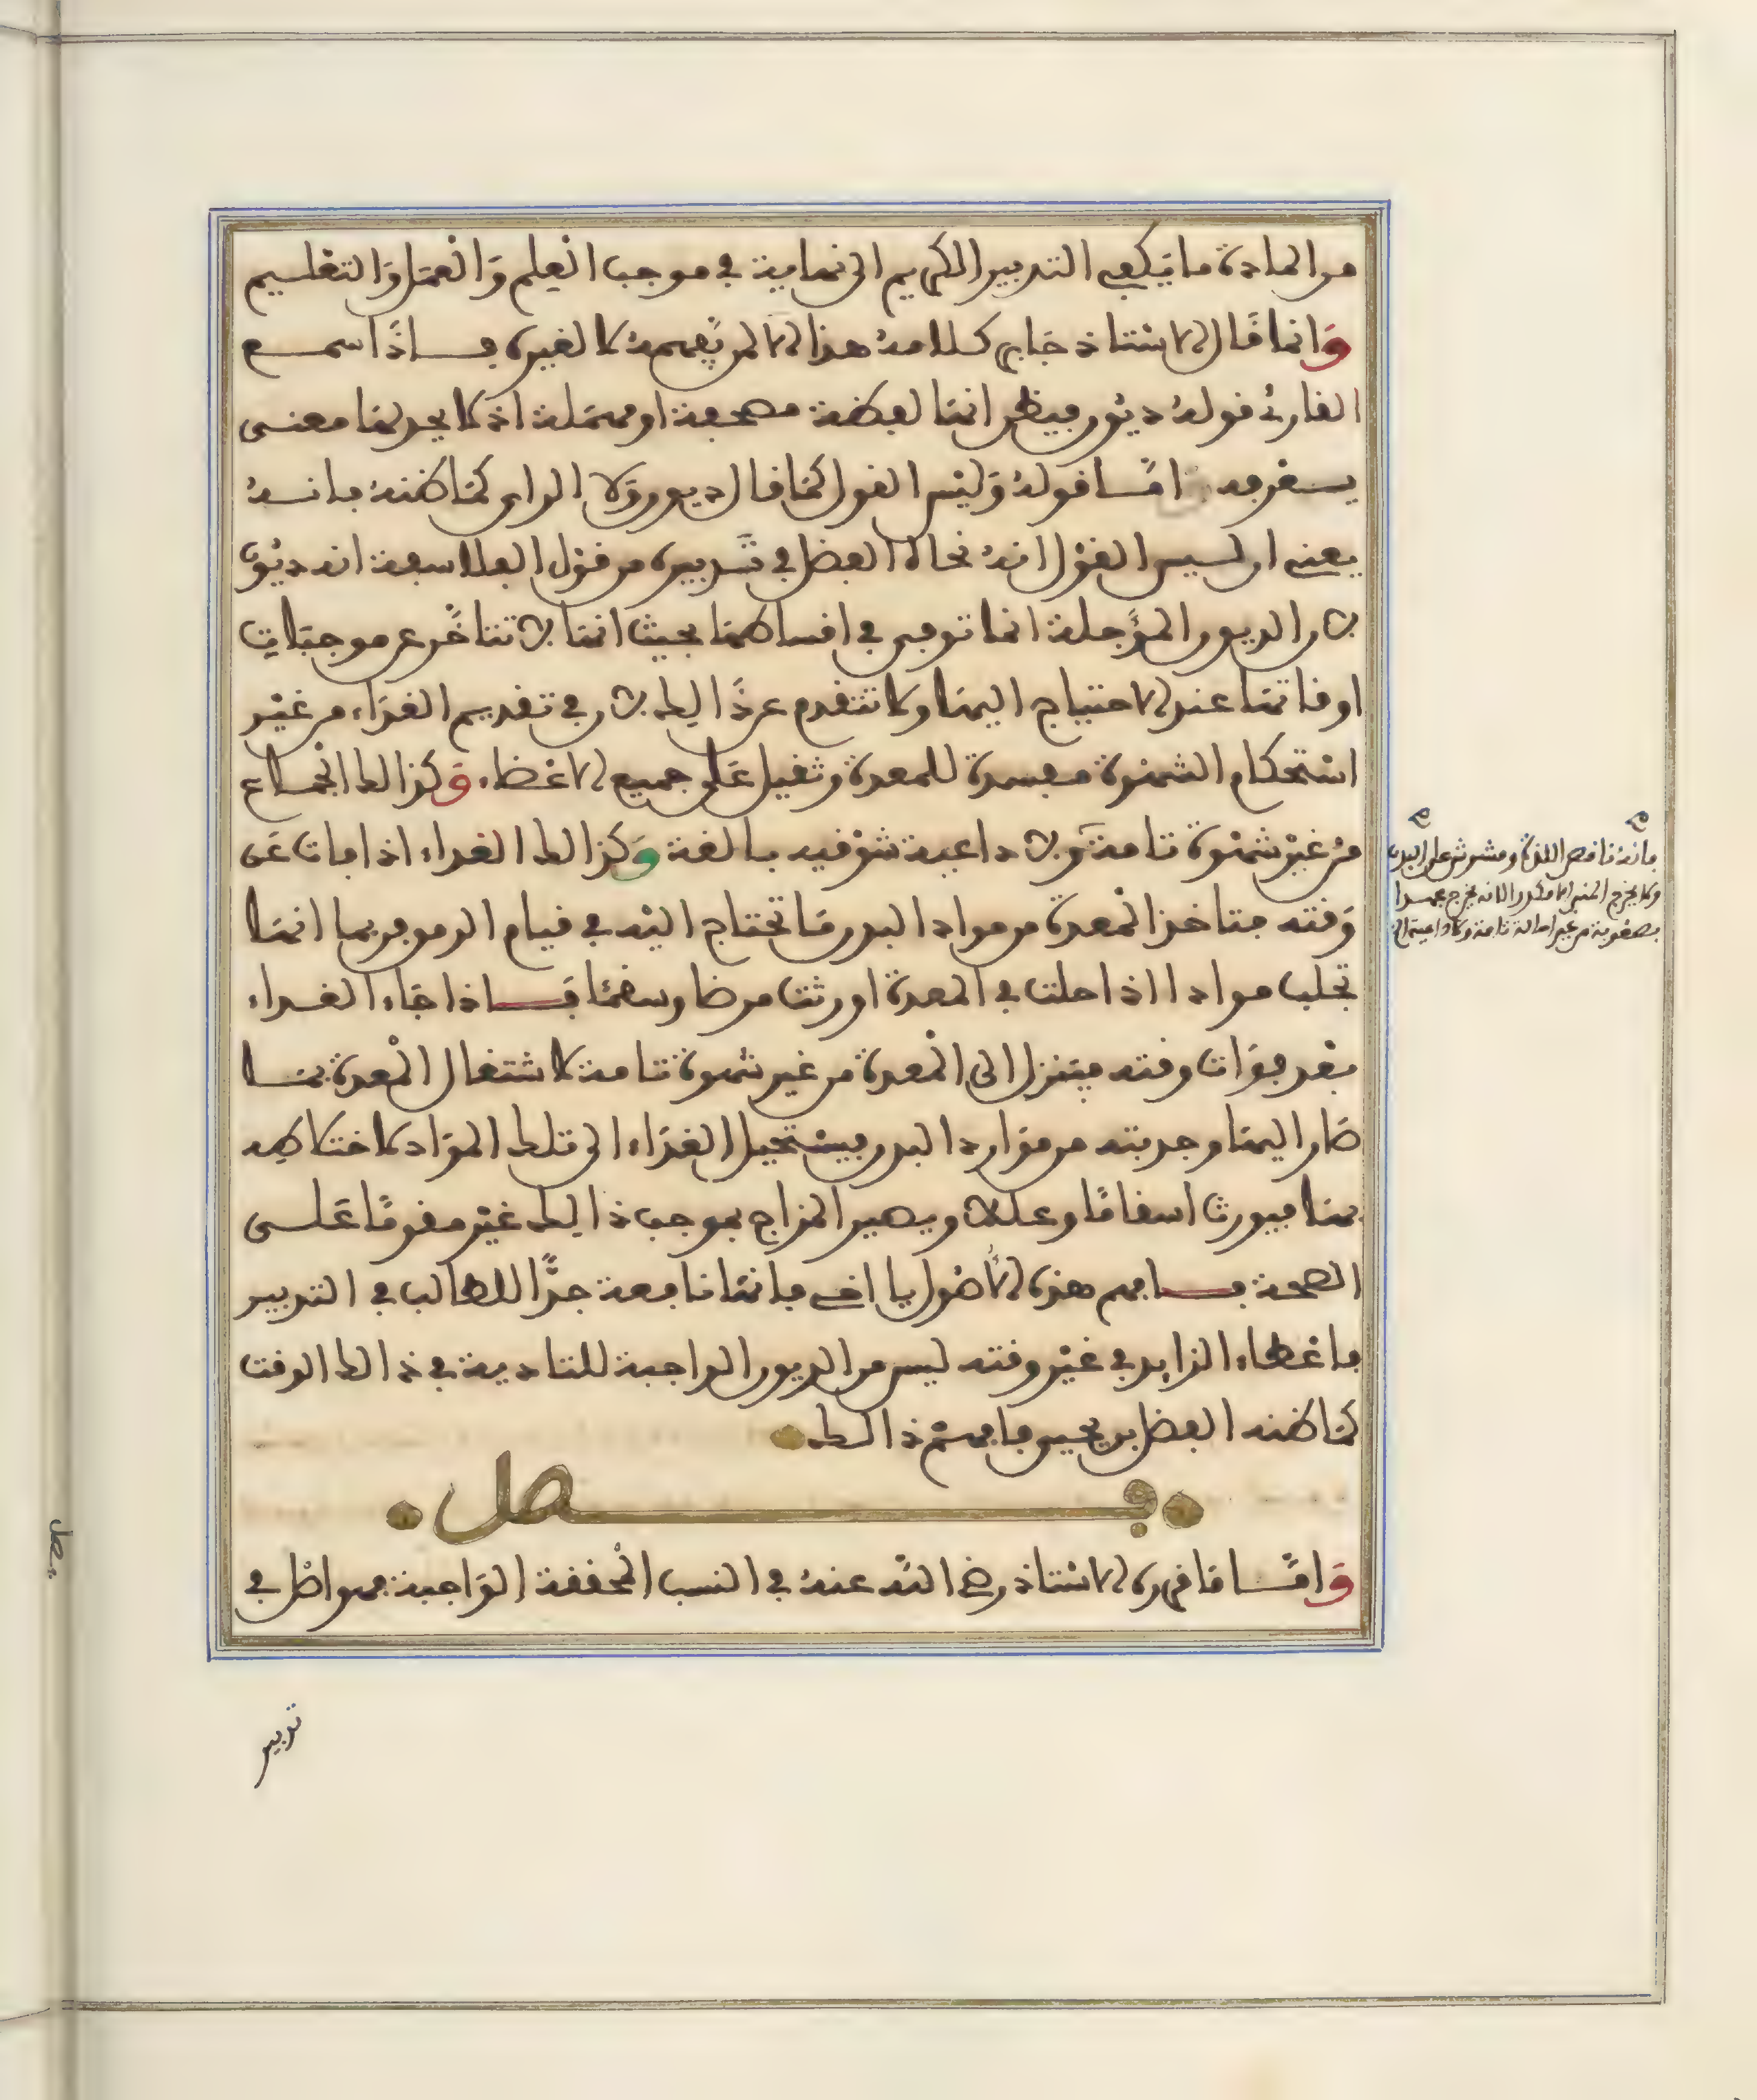 من المادة ما يكفي التدبير الكريم الى نهايته في موجب العلم والعمل والتعليم
وانما قال الاستاذ جابر كلامه هذا لانه لم يفهمه لا لغيره فاذا سمع
القارئ قوله ديون فيظن انها لفظة مصحفة او مهملة اذ لا يجد لها معنى
يسعر به اما قوله وليس القول كما قال ديون ولا الراي كما ظنه فانه
يعني ان ليس القول انه نحاه الفضل في تدبيره من قول الفلاسفة انه ديون
لان الديون المؤجلة انما توفى في اقساطها بحيث انها لا تتاخر عن موجبات
اوقاتها عند الاحتياج اليها ولا تتقدم عن ذالك لان في تقديم الغذاء من غير
استحكام الشهوة مفسدة للمعدة وثقيل على جميع الاعضاء وكذالك الجماع
من غير شهوة تامة ولا داعية شوقيه بالغة وكذالك الغداء اذا فات عن
وقته فتاخذ المعدة من مواد البدن ما تحتاج اليه في قيام الدم فربما انها
تجلب موادا اذا حلت في المعدة اورثت مرضا وسقما فاذا جاء الغداء
بعد فوات وقته فينزل الى المعدة من غير شهوة تامة لاشتغال المعدة بما
صار اليها وجذبته من موارد البدن فيستحيل الغذاء الى تلك المواد لاختلاطه
بها فيورث اسقاما وعللا ويصير المزاج بموجب ذالك غير مقوما على
الصحة فافهم هذه الاصول يا اخي فانها نافعة جدا للطالب في التدبير
فاعطاء الزايد في غير وقته ليس من الديون الواجبة للتادية في ذالك الوقت
كما ظنه الفضل بن يحيى فافهم ذالك
فصل
واما ما قرره الاستاذ رضي الله عنه في النسب المحققة الواجبة فهو اصل في
تدبير
فانه ناقص اللذة ومشوش على البدن
ولا يخرج المني الا مكدرا لانه يخرج
بصعوبة من غير امالة تامة ولا داعية